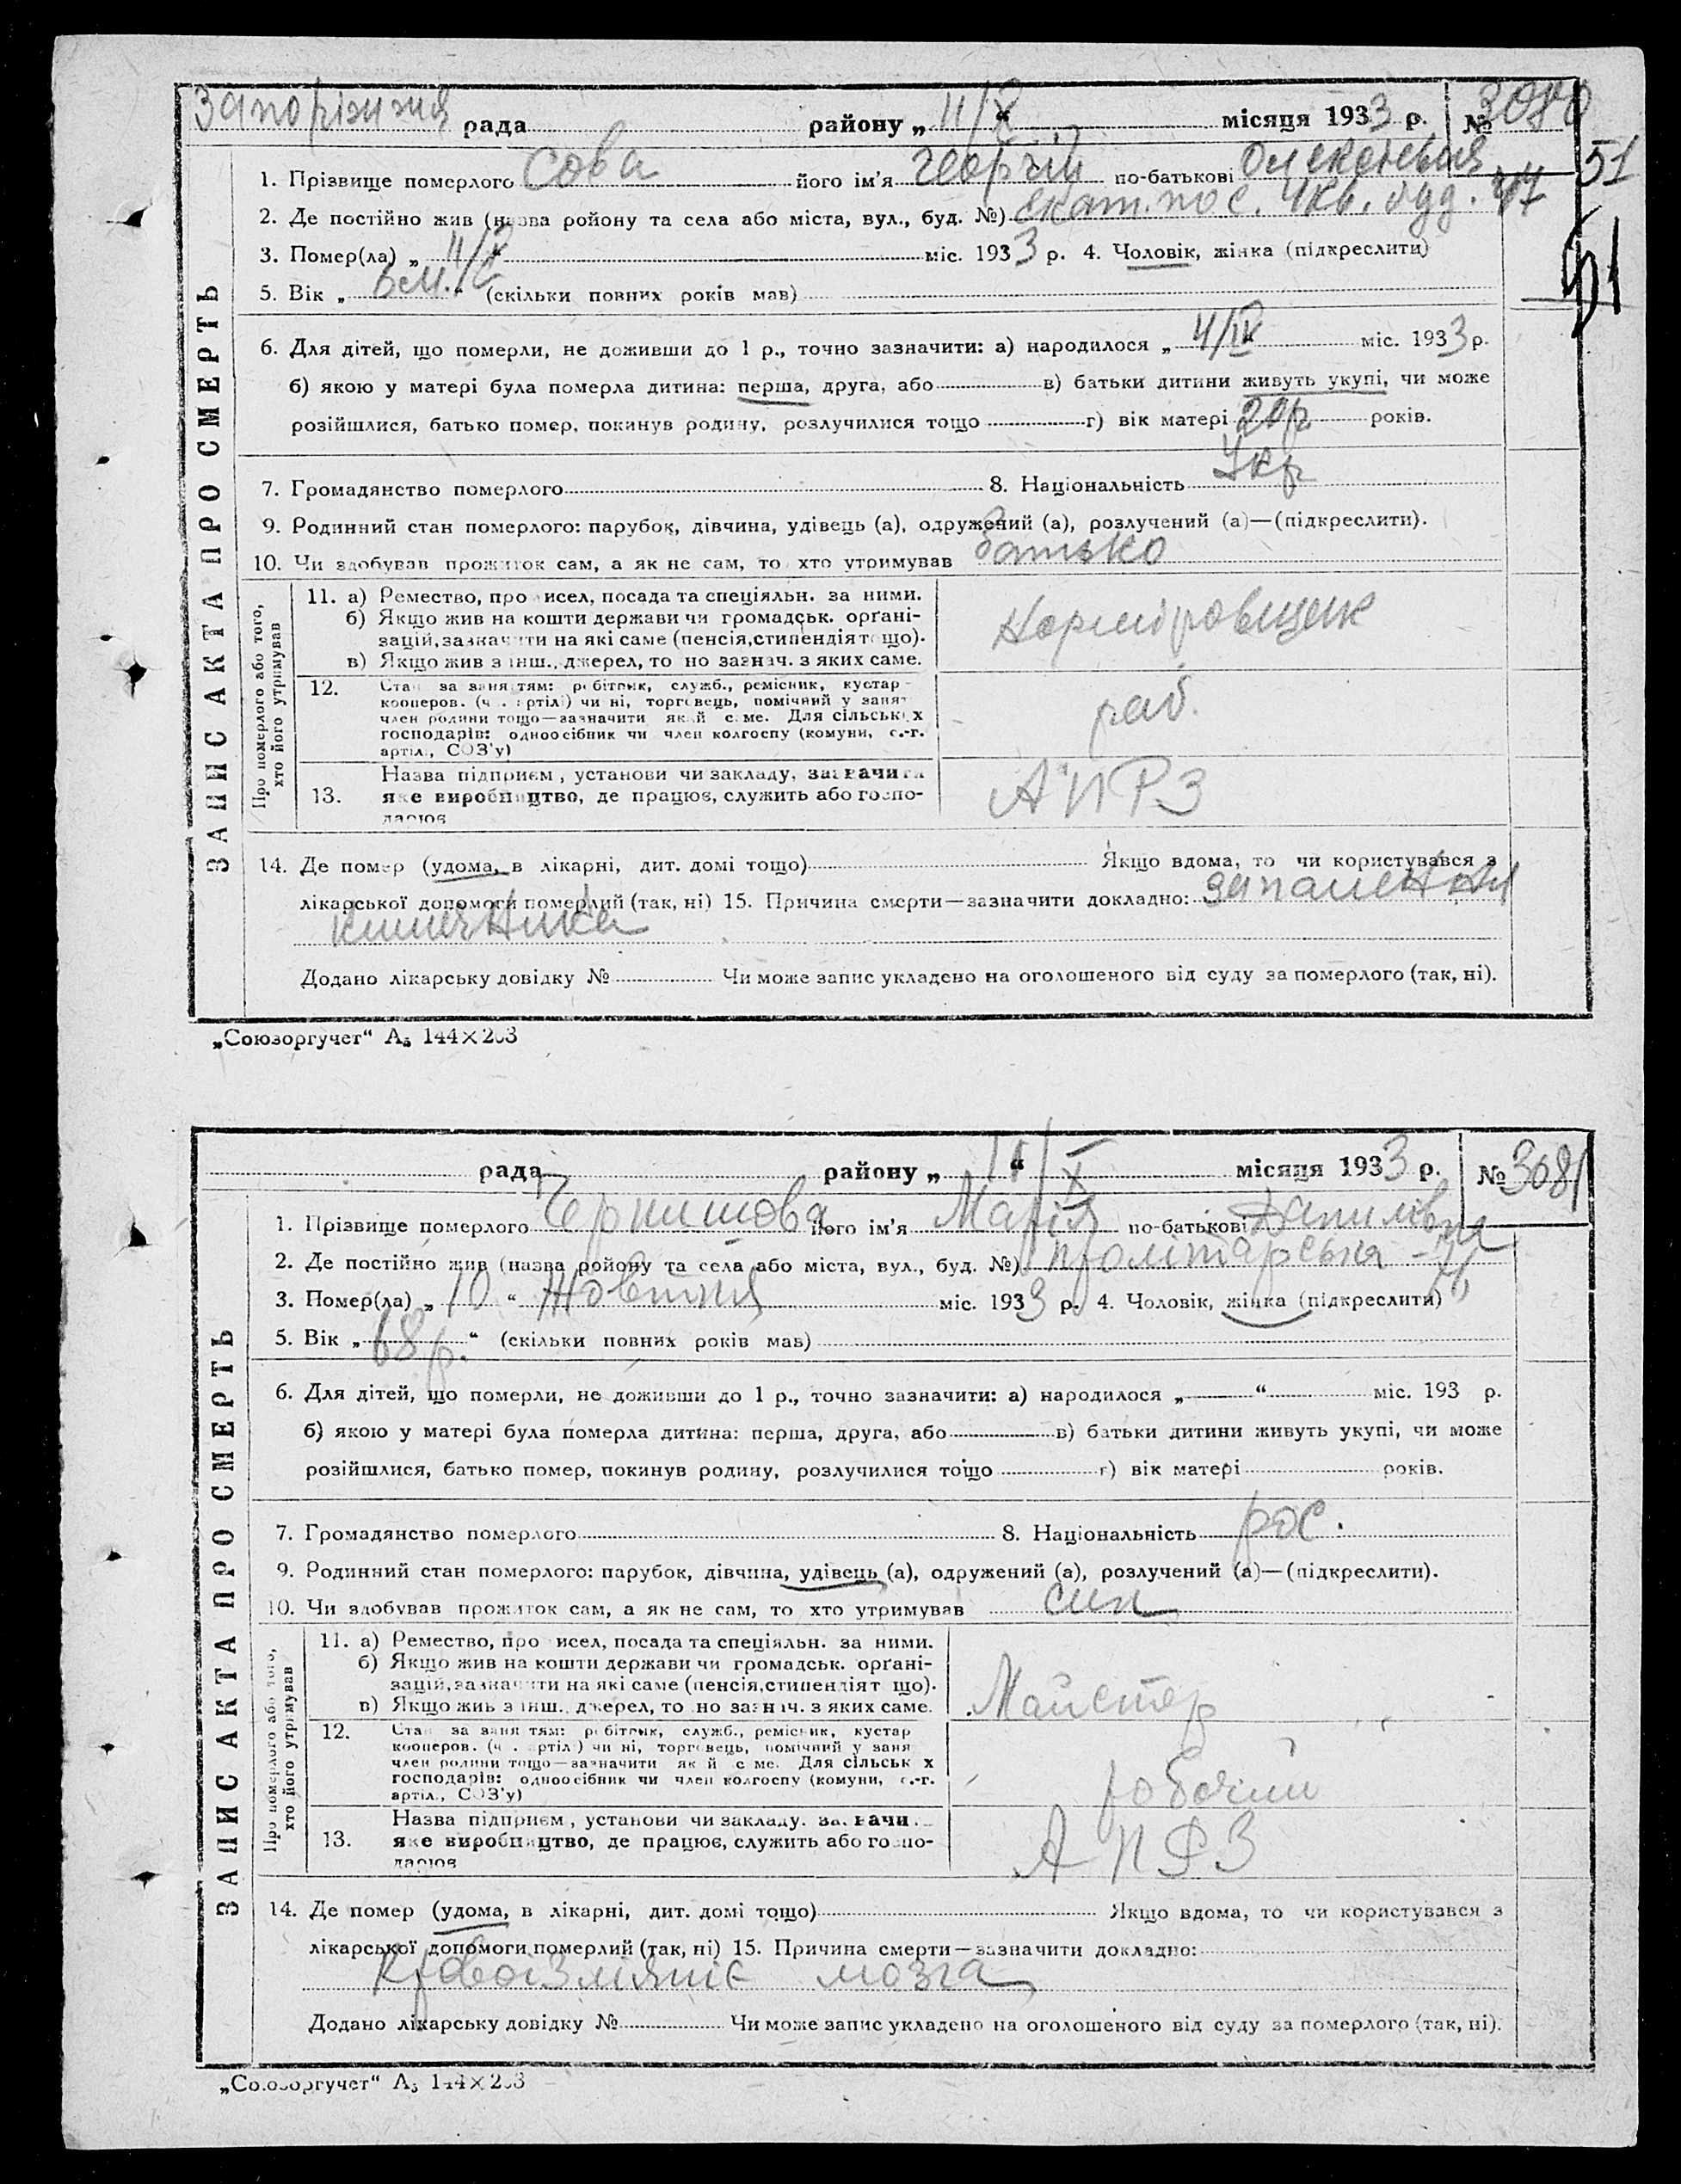 Запоріжжя рада району „ 11/X “ місяця 1933 р. № 3080
51
1. Прізвище померлого Сова його ім'я Георгій по-батькові
2. Де постійно жив (назва ройону та села або міста, вул., буд. №) екат. пос. 4 кв. буд. 47
51
3. Помер(ла) „ 11/X “ міс. 1933 р. 4. Чоловік, жінка (підкреслити)
5. Вік „ 6 м. “ (скільки повних років мав)
6. Для дітей, що померли, не доживши до 1 р., точно зазначити: а) народилося „ 4/IV міс. 1933 р.
б) якою у матері була померла дитина: перша, друга, або в) батьки дитини живуть укупі, чи може
розійшлися, батько помер, покинув родину, розлучилися тощо г) вік матері 20 р років.
7. Громадянство померлого 8. Національність Укр
9. Родинний стан померлого: парубок, дівчина, удівець (а), одружений (а), розлучений (а)—(підкреслити).
10. Чи здобував прожиток сам, а як не сам, то хто утримував батько
ЗАПИС АКТА ПРО СМЕРТЬ
Про померлого або того,
хто його утримував
11. а) Ремество, про исел, посада та спеціяльн. за ними.
б) Якщо жив на кошти держави чи громадськ. орґані-
зацій, зазначити на які саме (пенсія, стипендія тощо).
в) Якщо жив з інш., джерел, то но зазнач. з яких саме.
Норміровщик
12. Стан за заняттям: робітник, служб., ремісник, кустар
кооперов. (ч . артілі) чи ні, торговець, помічний у занят
член родини тощо—зазначити який саме. Для сільських
господарів: одноосібник чи член колгоспу (комуни, с.-г.
артіл., СОЗ'у)
раб.
13. Назва підприєм , установи чи закладу, зазначити
яке виробництво, де працює, служить або госпо-
дарює
АПРЗ
14. Де помер (удома, в лікарні, дит. домі тощо) Якщо вдома, то чи користувався з
лікарської допомоги померлий (так, ні) 15. Причина смерти—зазначити докладно: запалення
кишечника
Додано лікарську довідку № Чи може запис укладено на оголошеного від суду за померлого (так, ні).
„Союзоргучет“ А₅ 144×203
рада району „ 11/X “ місяця 1933 р. № 3081
1. Прізвище померлого Чернишова його ім'я Марія по-батькові Данилівна
2. Де постійно жив (назва ройону та села або міста, вул., буд. №) Пролітарська
3. Помер(ла) „ 10 “ Жовтня міс. 1933 р. 4. Чоловік, жінка (підкреслити)
5. Вік „ 68 р. “ (скільки повних років мав)
6. Для дітей, що померли, не доживши до 1 р., точно зазначити: а) народилося „ “ міс. 193 р.
б) якою у матері була померла дитина: перша, друга, або в) батьки дитини живуть укупі, чи може
розійшлися, батько помер, покинув родину, розлучилися тощо г) вік матері років.
7. Громадянство померлого 8. Національність рос.
9. Родинний стан померлого: парубок, дівчина, удівець (а), одружений (а), розлучений (а)—(підкреслити).
10. Чи здобував прожиток сам, а як не сам, то хто утримував син
ЗАПИС АКТА ПРО СМЕРТЬ
Про померлого або того,
хто його утримував
11. а) Ремество, про исел, посада та спеціяльн. за ними.
б) Якщо жив на кошти держави чи громадськ. орґані-
зацій, зазначити на які саме (пенсія, стипендія т що).
в) Якщо жив з інш. джерел, то но зазнач. з яких саме.
Майстер
12. Стан за заняттям: робітник, служб., ремісник, кустар
кооперов. (ч . артіл ) чи ні, торговець, помічний у заня
член родини тощо—зазначити як й с ме. Для сільськ х
господарів: одноосібник чи член колгоспу (комуни, с.-г.
артіл., СОЗ'у)
робочий
13. Назва підприєм , установи чи закладу. зазначи
яке виробництво, де працює, служить або госпо-
дарює
АПРЗ
14. Де помер (удома, в лікарні, дит. домі тощо) Якщо вдома, то чи користувався з
лікарської допомоги померлий (так, ні) 15. Причина смерти—зазначити докладно:
Кровоізліяніє мозга
Додано лікарську довідку № Чи може запис укладено на оголошеного від суду за померлого (так, ні).
„Союзоргучет“ А₅ 144×203